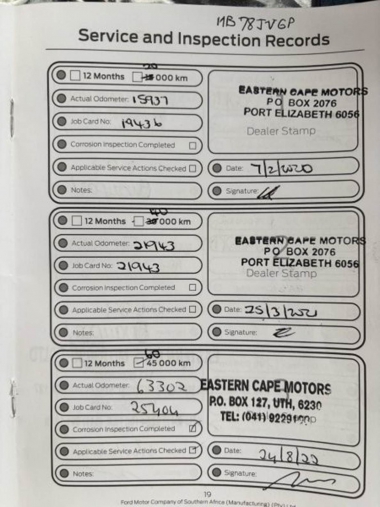 MB 78 JVGP
Service and Inspection Records
12 Months 000 km
Actual Odometer: 15937
Job Card No: 19436
Corrosion Inspection Completed
Applicable Service Actions Checked
Notes:
EASTERN CAPE MOTORS
PO BOX 2076
PORT ELIZABETH 6056
Dealer Stamp
Date: 7/2/2020
Signature:
12 Months 000 km
Actual Odometer: 21943
Job Card No: 21943
Corrosion Inspection Completed
Applicable Service Actions Checked
Notes:
EASTERN CAPE MOTORS
PO BOX 2076
PORT ELIZABETH 6056
Dealer Stamp
Date: 25/3/2021
Signature:
60
12 Months 45 000 km
Actual Odometer: 63302
Job Card No: 25404
Corrosion Inspection Completed
Applicable Service Actions Checked
Notes:
EASTERN CAPE MOTORS
P.O. BOX 127, UTH, 6230
TEL: (041) 9229
Date: 24/8/22
Signature:
19
Ford Motor Company of Southern Africa (Manufacturing) (Pty) Ltd